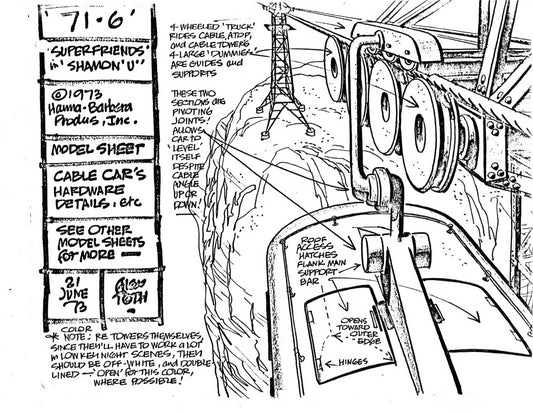 '71-6'
'SUPERFRIENDS'
in "SHAMON 'U'"
©1973
Hanna-Barbera
Produs, Inc.
MODEL SHEET
CABLE CAR'S
HARDWARE
DETAILS, etc
SEE OTHER
MODEL SHEETS
for MORE —
21
JUNE
'73
Alex
TOTH
4-WHEELED 'TRUCK'
RIDES CABLE, ATOP,
and CABLE TOWERS
4-LARGE 'DUMMIES'
ARE GUIDES and
SUPPORTS
THESE TWO
SECTIONS are
PIVOTING
JOINTS!
ALLOWS
CAR TO
'LEVEL'
ITSELF
DESPITE
CABLE
ANGLE
UP OR
DOWN!
ROOF
ACCESS
HATCHES
FLANK MAIN
SUPPORT
BAR
OPENS
TOWARD
OUTER
EDGE
HINGES
COLOR
* NOTE: RE TOWERS THEMSELVES,
SINCE THEY'LL HAVE TO WORK A LOT
in LOW KEY NIGHT SCENES, THEY
SHOULD BE OFF-WHITE, and DOUBLE-
LINED — 'OPEN' for THIS COLOR,
WHERE POSSIBLE!